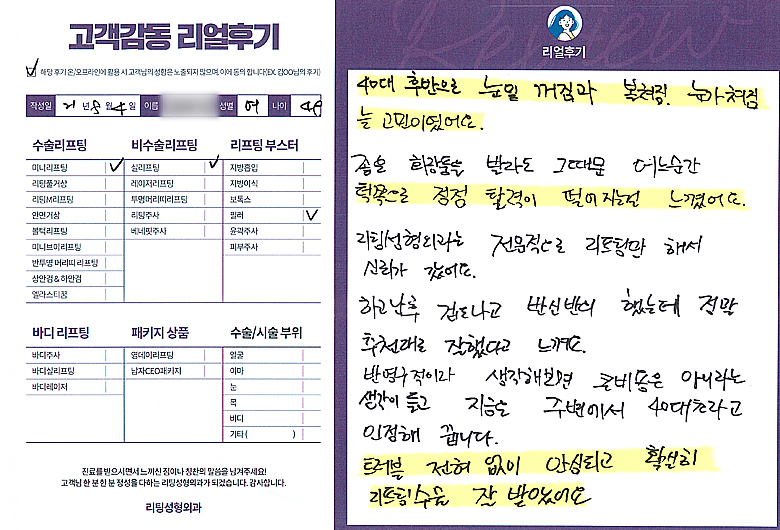 고객감동 리얼후기
해당 후기 온/오프라인에 활용 시 고객님의 성함은 노출되지 않으며, 이에 동의 합니다(EX. 김OO님의 후기)
작성일 21년 8월 4일 이름 성별 여 나이 49
수술리프팅
미니리프팅
리팅풀거상
리팅M리프팅
안면거상
볼턱리프팅
미니브이리프팅
반투명 머리띠리프팅
상안검&하안검
엘라스티꿈
비수술리프팅
실리프팅
레이저리프팅
투명머리띠리프팅
리팅주사
베네핏주사
리프팅 부스터
지방흡입
지방이식
보톡스
필러
윤곽주사
피부주사
바디 리프팅
바디주사
바디실리프팅
바디레이저
패키지 상품
영데이리프팅
남자CEO패키지
수술/시술 부위
얼굴
이마
눈
목
바디
기타 ( )
진료를 받으시면서 느끼신 점이나 칭찬의 말씀을 남겨주세요!
고객님 한 분 한 분 정성을 다하는 리팅성형외과가 되겠습니다. 감사합니다.
리팅성형외과
Review
리얼후기
40대 후반으로 눈밑 꺼짐과 볼쳐짐. 눈가쳐짐
늘 고민이었어요.
좋은 화장품을 발라도 그때뿐 어느순간
턱쪽으로 점점 탄력이 떨어지는걸 느꼈어요.
리팅성형외과는 전문적으로 리프팅만 해서
신뢰가 갔어요.
하고난후 겁도나고 반신반의 했는데 정말
추천대로 잘했다고 느껴요.
반영구적이라 생각해보면 큰비용은 아니라는
생각이 들고 지금은 주변에서 40대초라고
인정해 줍니다.
트러블 전혀 없이 안심되고 확실히
리프팅수술 잘 받았어요